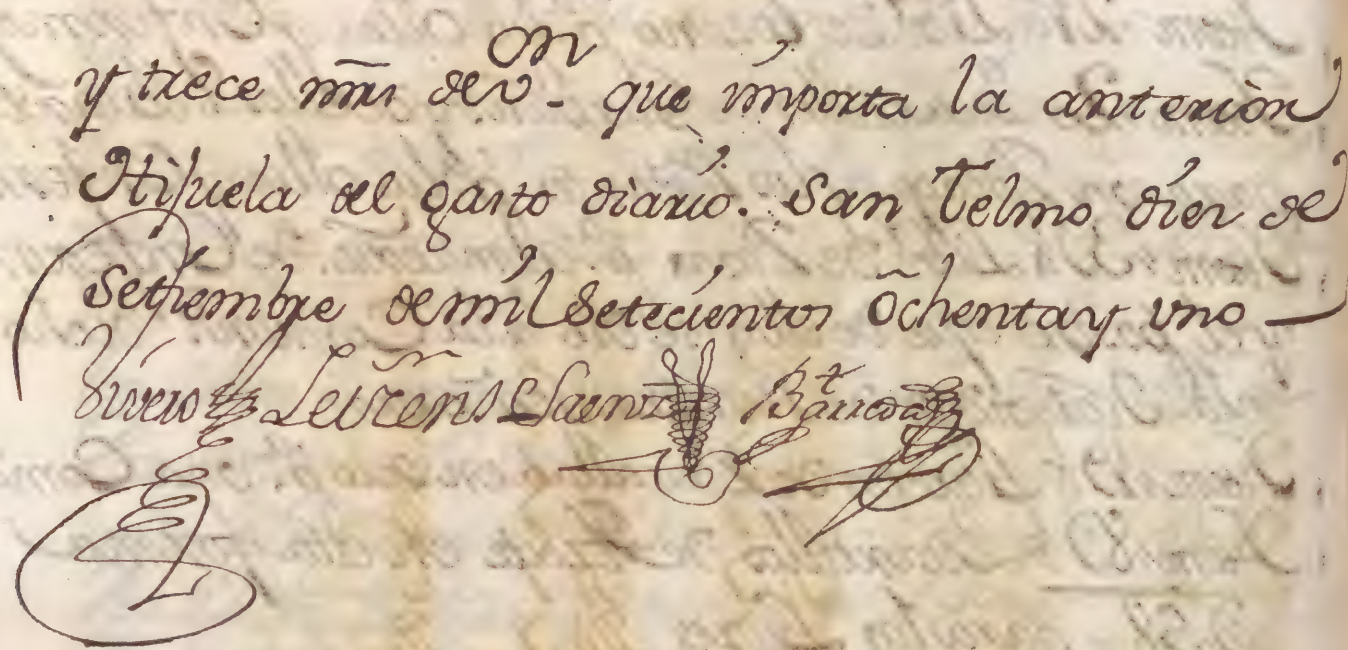 y trece mrs̃ de von. que importa la anterior
Hijuela del gasto diario. San Telmo diez de
Setiembre de mil Setecientos Ochenta y uno
Vivero Saenz Barreda